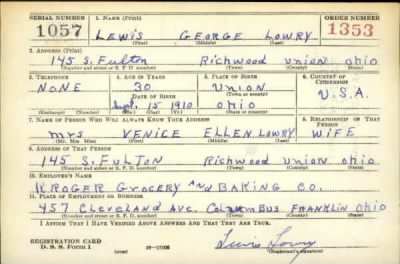 SERIAL NUMBER 1. NAME (Print) ORDER NUMBER
1057 LEWIS GEORGE LOWRY 1353
(First) (Middle) (Last)
3. ADDRESS (Print)
145 S. Fulton Richwood Union Ohio
(Number and street or R. F. D. number) (Town) (County) (State)
3. TELEPHONE 4. AGE IN YEARS 5. PLACE OF BIRTH 6. COUNTRY OF CITIZENSHIP
NONE 30 Union
DATE OF BIRTH (Town or county) U.S.A.
Sept. 15 1910 Ohio
(Exchange) (Number) (Mo.) (Day) (Yr.) (State or country)
7. NAME OF PERSON WHO WILL ALWAYS KNOW YOUR ADDRESS 8. RELATIONSHIP OF THAT PERSON
Mrs VENICE ELLEN LOWRY WIFE
(Mr., Mrs., Miss) (First) (Middle) (Last)
9. ADDRESS OF THAT PERSON
145 S. FULTON Richwood Union Ohio
(Number and street or R. F. D. number) (Town) (County) (State)
10. EMPLOYER'S NAME
KROGER GROCERY AND BAKING CO.
11. PLACE OF EMPLOYMENT OR BUSINESS
457 Cleveland Ave. Columbus FRANKLIN Ohio
(Number and street or R. F. D. number) (Town) (County) (State)
I AFFIRM THAT I HAVE VERIFIED ABOVE ANSWERS AND THAT THEY ARE TRUE.
REGISTRATION CARD
D. S. S. Form 1 (over) 16—17105 (Registrant's signature)